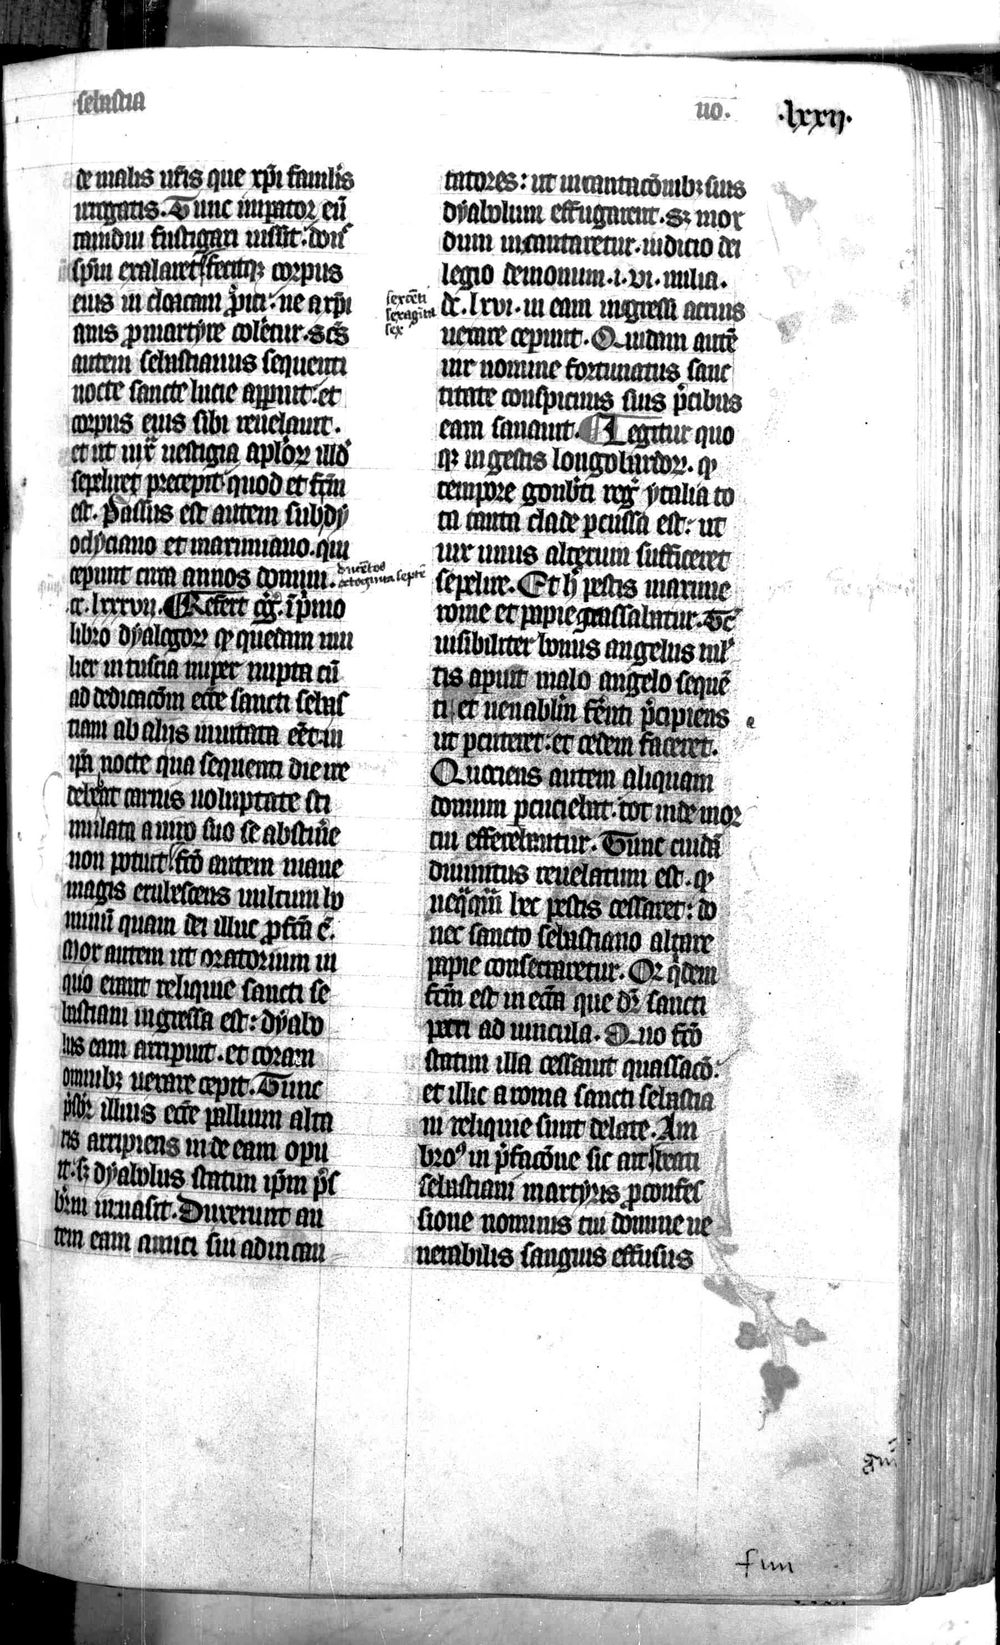 sebastia
no. ·lxxij·
de malis vr̄is que xp̄i famil̓is
irrogatis. Tunc imꝑator eū
tamdiu fustigari iussit: don̄
sp̄m exalaret fecitqꝫ corpus
eius in cloacam ꝓici: ne a xp̄i
anis ꝓ martÿre coler̄tur. Sc̄s
autem sebastianus sequenti
nocte sancte lucie apꝑuit: et
corpus eius sibi reuelauit.
et ut iux̄ uestigia aplōꝝ illd̓
sepeliret precepit: quod et fc̄m
est. Passus est autem sub dÿ
oclÿciano et maximiano. qui
ceperunt circa annos domini.
cc. lxxxvij. Refert gg̓. ī p̓mo
libro dÿalogoꝝ ꝙ quedam mu
lier in tuscia nuper nupta cū
ad dedicacōm ecc̄e sancti sebas
tiani ab alijs inuitata eēt: in
ip̄a nocte qua sequenti die ire
debebat carnis uoluptate sti
mulata a uiro suo se abstin̄e
non potuit: fc̄o autem mane
magis erubescens uultum ho
minū quam dei illuc ꝓfc̄a ē.
Mox autem ut oratorium in
quo erant reliquie sancti se
bastiani ingressa est: dÿabo
lus eam arripuit. et coram
omnibꝫ uexare cepit. Tunc
p̓sbr̄ illius ecc̄e pallium alta
ris arripiens inde eam opu
it. sꝫ dÿabolus statim ip̄m p̓s
br̄m inuasit. Duxerunt au
tem eam amici sui ad incan
ducētos
octoginta septē
sexcēti
sexagīta
sex
tatores: ut incantacōnibꝫ suis
dÿabolum effugarent. Sꝫ mox
dum incantaretur. iudicio dei
legio demonum. i. vi. milia.
dc. lxvi. in eam ingressi acrius
uexare ceperunt. Quidam autē
uir nomine fortunatus sanc
titate conspicuus suis p̓cibus
eam sanauit. Legitur quo
qꝫ in gestis longobardoꝝ. ꝙ
tempore gonb̓ti reg̓ ÿtalia to
ta tanta clade ꝑcussa est: ut
uix unus alterum sufficeret
sepelire. Et h̓ pestis maxime
rome et papie grassabatur. Tc̄
uisibiliter bonus angelus ml̓
tis aparuit malo angelo sequē
ti et uenabl̓m fer̄nti p̓cipiens
ut ꝑcuteret: et cedem faceret.
Quociens autem aliquam
domum ꝑcuciebat: tot inde mor
tui efferebantur. Tunc cuidā
diuinitus reuelatum est. ꝙ
neq̄q̄m hec pestis cessaret: do
nec sancto sebastiano altare
papie consecraretur. Qꝛ q̓dem
fc̄m est in ecc̄a que dr̄ sancti
petri ad uincula. Quo fc̄o
statim illa cessauit quassacō:
et illic a roma sancti sebastia
ni reliquie sunt delate. Am
bro⁹ in p̓facōne sic ait: beati
sebastiani martÿris ꝓ confes
sione nominis tui domine ue
nerabilis sanguis effusus